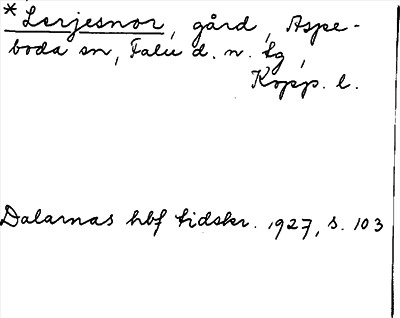 * Lerjesnor, gård, Aspe-
boda sn, Falu d. n. tg,
Kopp. l.
Dalarnas hbf tidskr. 1927, s. 103